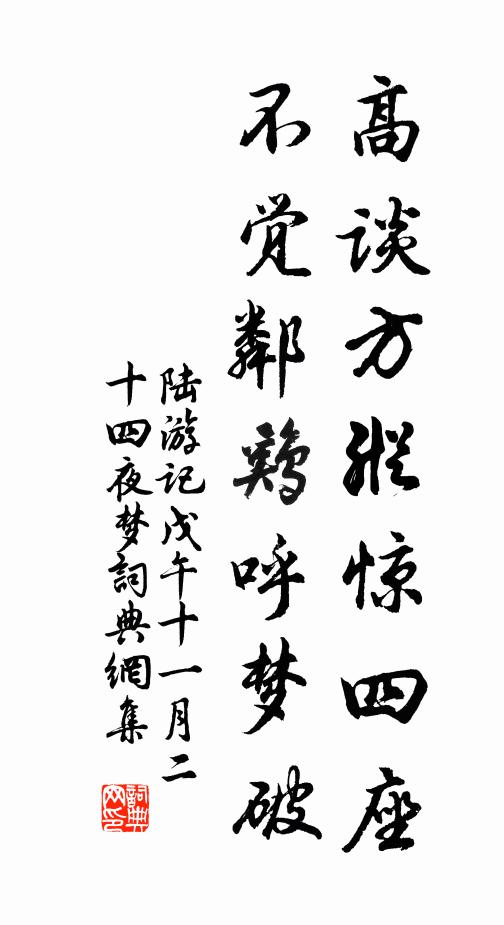 高谈方縱惊四座
不觉鄰鷄呼梦破
陆游记戊午十一月二
十四夜梦詞典網集
詞典网印